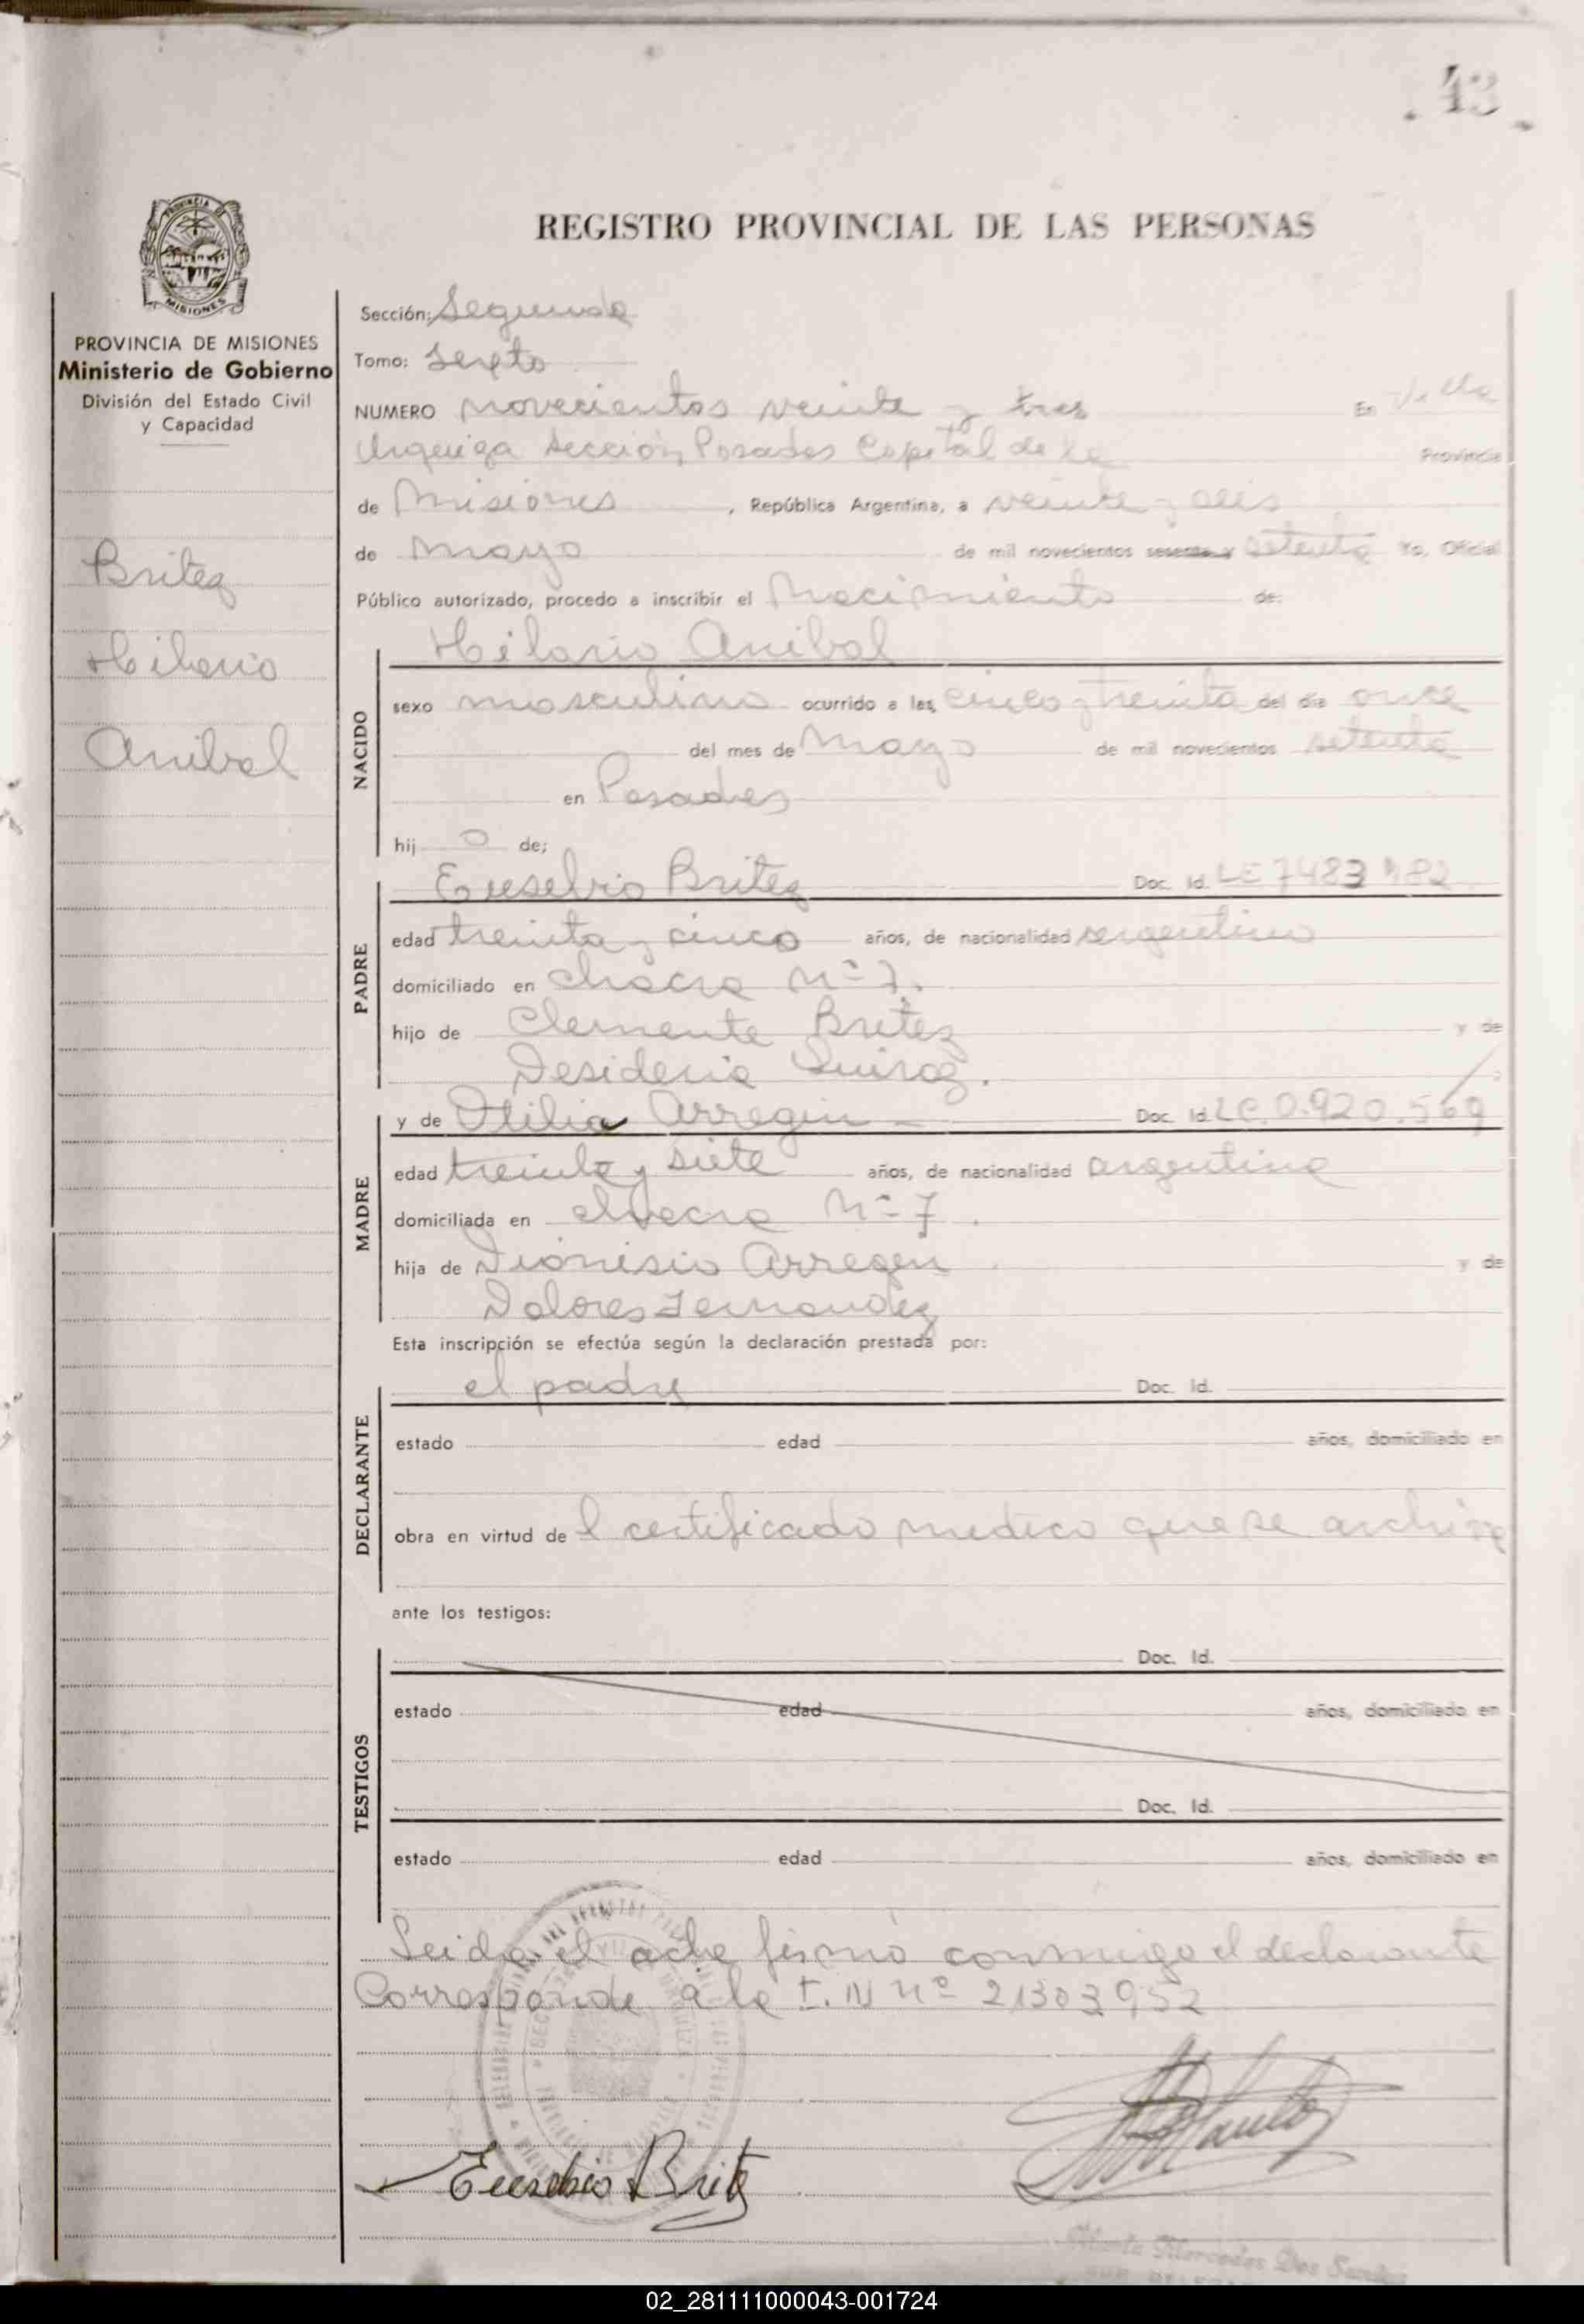 43
REGISTRO PROVINCIAL DE LAS PERSONAS
PROVINCIA DE MISIONES
Ministerio de Gobierno
División del Estado Civil
y Capacidad
Britez
Hilario
Anibal
Sección: Segunda
Tomo: Sexto
NUMERO novecientos veinte y tres En Villa
Urquiza Sección Posadas Capital de la Provincia
de Misiones, República Argentina, a veinte y seis
de Mayo de mil novecientos sesenta y setenta Yo, Oficial
Público autorizado, procedo a inscribir el Nacimiento de:
Hilario Anibal
NACIDO
sexo masculino ocurrido a las cinco y treinta del día once
del mes de Mayo de mil novecientos setenta
en Posadas
hij o de;
PADRE
Eusebio Britez Doc. Id. LE 7483 982
edad treinta y cinco años, de nacionalidad argentino
domiciliado en chacra Nº 7.
hijo de Clemente Britez y de
Desideria Quiroz.
MADRE
y de Otilia Arregin Doc. Id. LC 0.920.569
edad treinta y siete años, de nacionalidad argentina
domiciliada en chacra Nº 7.
hija de Dionisio Arregin y de
Dolores Fernandez
Esta inscripción se efectúa según la declaración prestada por:
DECLARANTE
el padre Doc. Id.
estado edad años, domiciliado en
obra en virtud de l certificado medico que se archiva
ante los testigos:
TESTIGOS
Doc. Id.
estado edad años, domiciliado en
Doc. Id.
estado edad años, domiciliado en
Leida el acta firmó conmigo el declarante
Corresponde a la I. N nº 21303952
Eusebio Britz
Mercedes Dos Santos
02_281111000043-001724